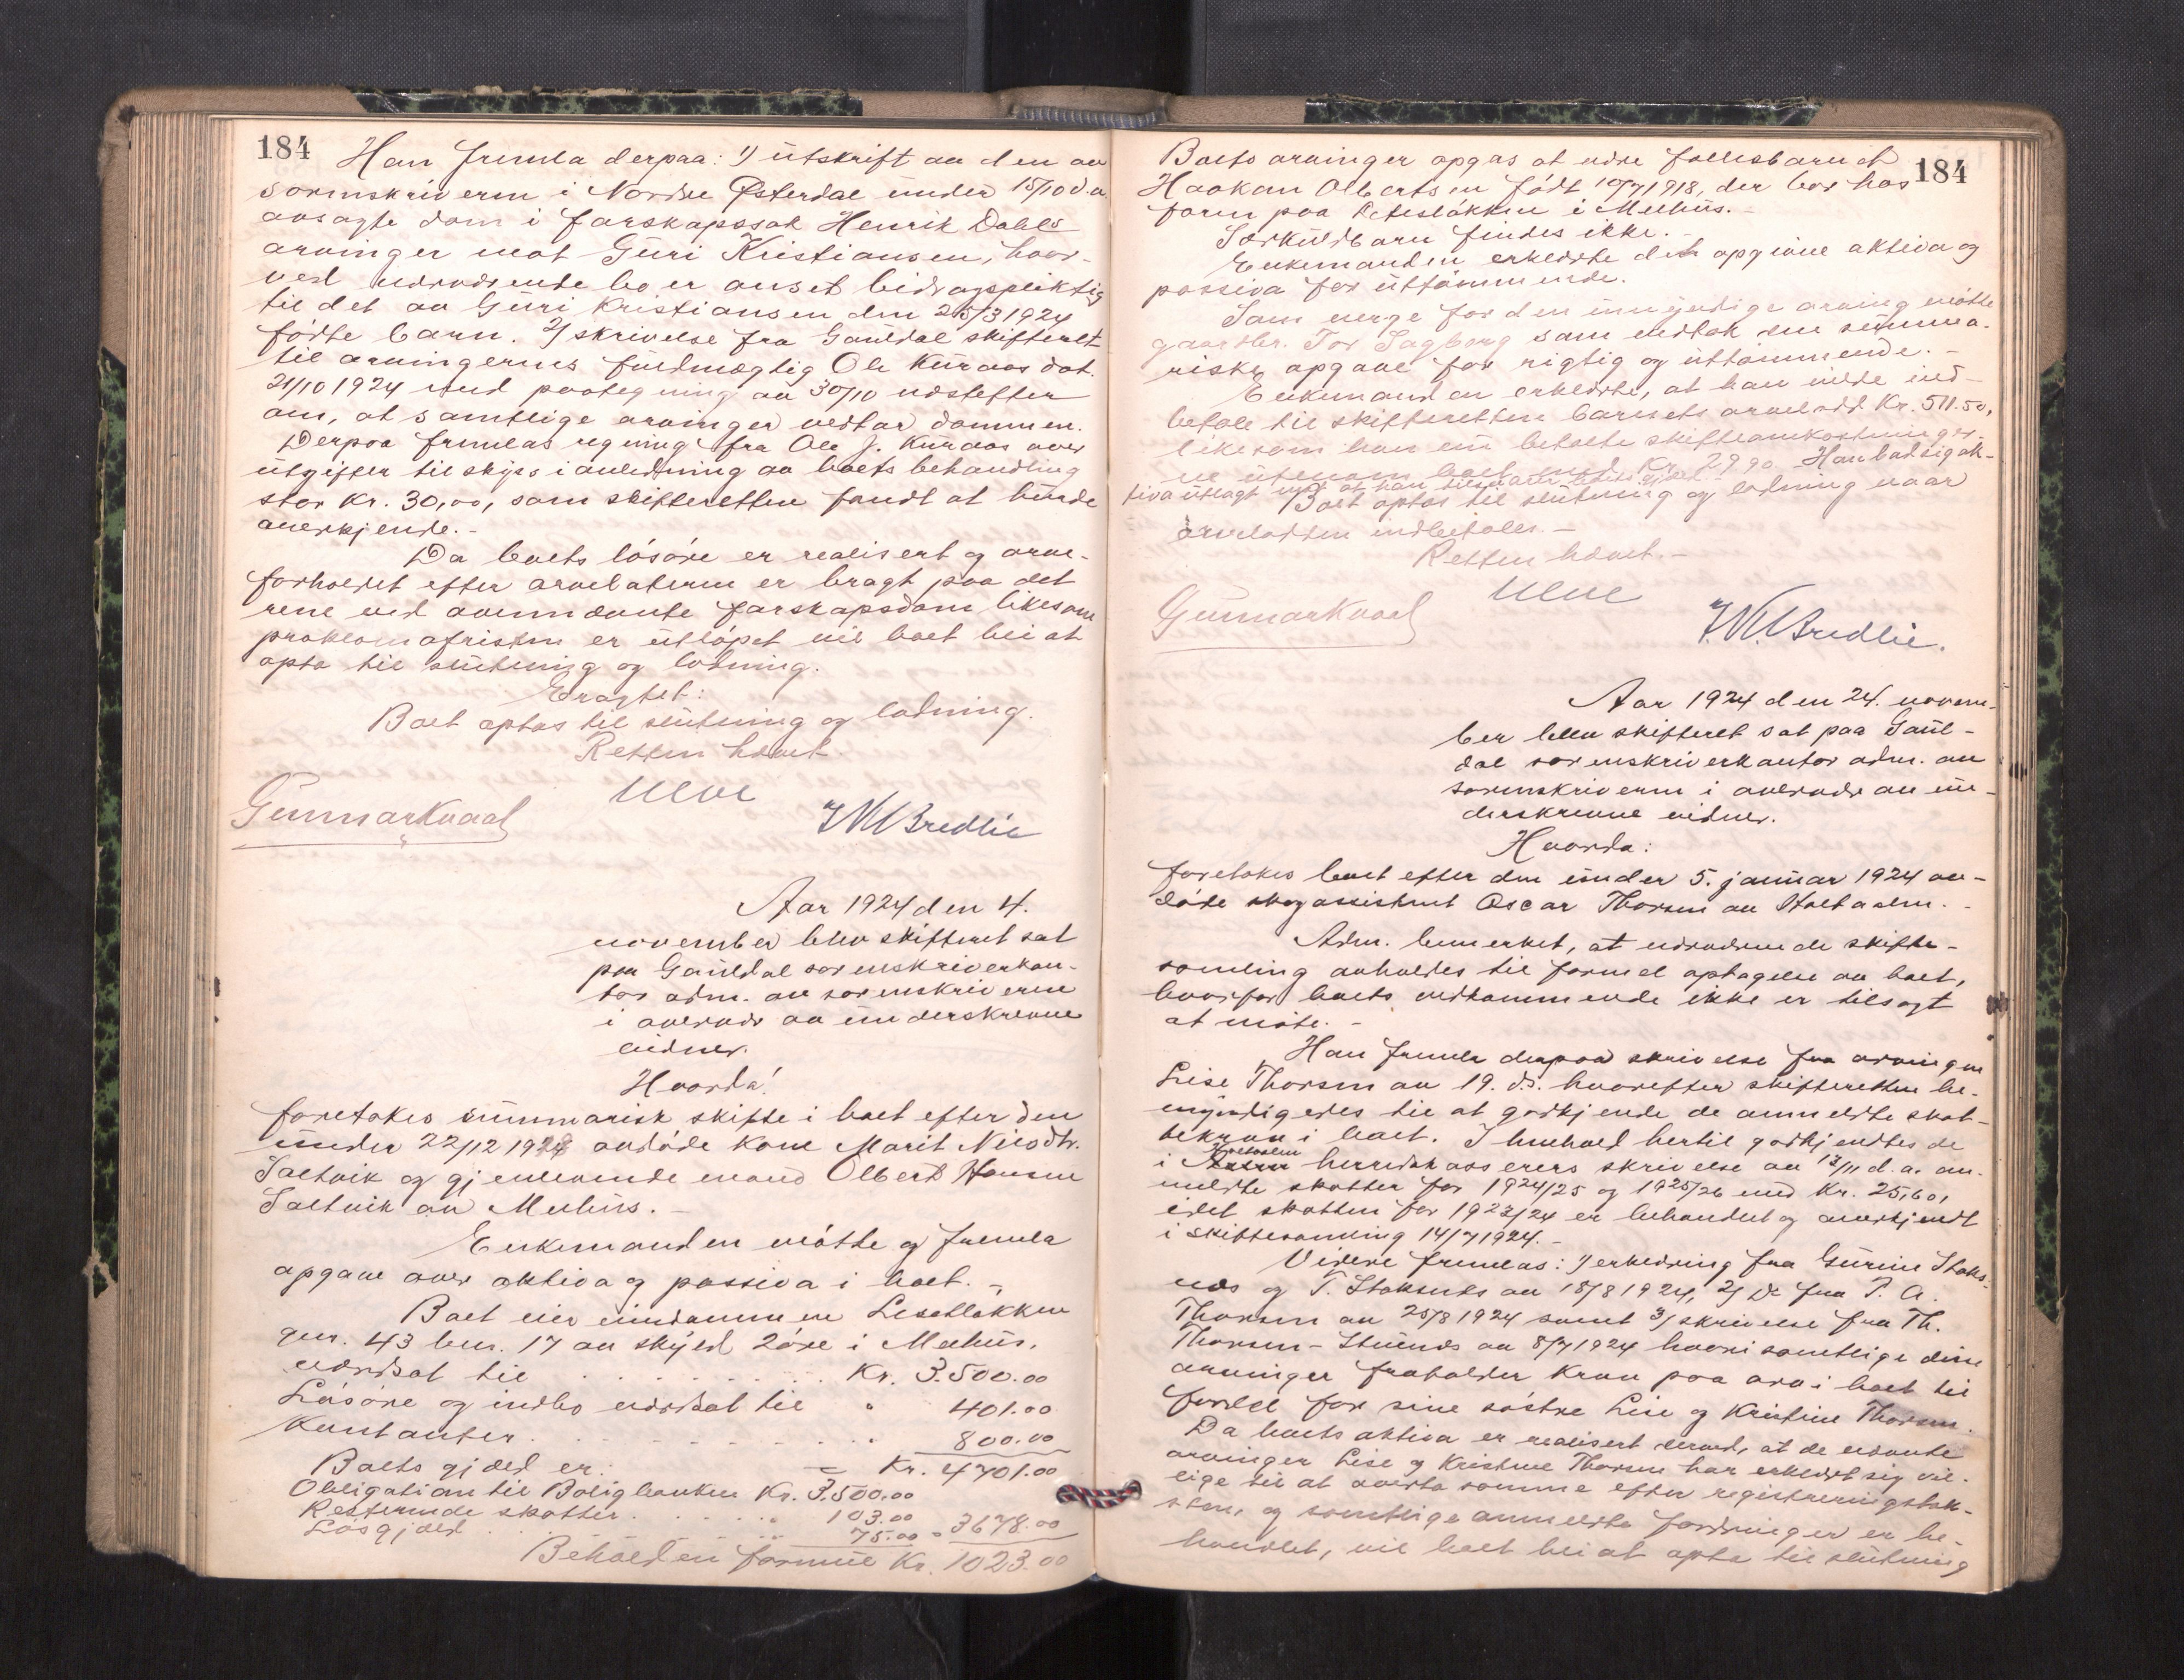 184
Han fremla derpaa: 1) utskrift av den av
sorenskriveren i Nordre Østerdal under 15/10 d.a.
avsagte dom i farskapssak Henrik Dahls
arvinger mot Guri Kristiansen, hvor-
ved nærværende bo er anset bidragspliktig
til det av Guri Kristiansen den 25/3 1924
fødte barn. 2/ skrivelse fra Gauldal skifteret
til arvingernes fuldmægtig Ole Kuraas dat.
21/10 1924 med paategning av 30/10 næstefter
om, at samtlige arvinger vedtar dommen.
Derpaa fremlas regning fra Ole J. Kuraas over
utgifter til skyss i anledning av boets behandling
stor kr. 30,00, som skifteretten fandt at burde
anerkjende.-
Da boets løsøre er realisert og arve-
forholdet efter arvelateren er bragt paa det
rene ved ovennævnte farskapsdom likesom
proklamafristen er utløpet vil boet bli at
opta til slutning og lodning.
Eragtet:
Boet optas til slutning og lodning.
Retten hævet
Ulve
Gunnar Kvaal
J N Bredlie
Aar 1924 den 4.
november blev skifteret sat
paa Gauldal sorenskriverkon-
tor adm. av sorenskriveren
i overvær av underskrevne
vidner.
Hvorda!
foretokes summarisk skifte i boet efter den
under 22/12 1924 avdøde kone Marit Nilsdtr.
Saltvik og gjenlevende mand Olbert Hansen
Saltvik av Melhus.-
Enkemanden møtte og fremla
opgave over aktiva og passiva i boet.-
Boet eier eiendommen Lesetløkken
gnr. 43 bnr. 17 av skyld 2 øre i Melhus,
værdsat til . . . . . . . . Kr. 3.500.00
Løsøre og indbo værdsat til " 401.00
Kontanter . . . . . . . " 800.00
Kr. 4701.00
Boets gjæld er:
Obligation til Boligbanken Kr. 3.500.00
Resterende skatter . . . . " 103.00
Løsgjæld . . . . . 75.00 " 3678.00
Beholden formue Kr. 1023.00
184
Boets arvinger opgas at være fællesbarnet
Haakon Olbertsen født 10/7 1918, der bor hos
faren paa Lesetløkken i Melhus.-
Særkuldbarn findes ikke.-
Enkemanden erklærte den opgivne aktiva og
passiva for uttømmende.
Som verge for den umyndige arving møtte
gaardbr. Tor Sagberg som vedtok den summa-
riske opgave for rigtig og uttømmende.-
Enkemanden erklærte, at han vilde ind-
betale til skifteretten barnets arvelodd Kr. 511.50,
likesom han vil betale skifteomkostninger
ne utenom boet med Kr. 29.90 Han bad sig ak-
tiva utlagt mot at han tilsvarer boets gjæld.
Boet optas til slutning og lodning naar
arvelodden indbetales.-
Retten hævet.-
Ulve
Gunnar Kvaal
J. N. Bredlie.
Aar 1924 den 24. novem-
ber blev skifteret sat paa Gaul-
dal sorenskriverkontor adm. av
sorenskriveren i overvær av un-
derskrevne vidner.
Hvorda:
foretokes boet efter den under 5. januar 1924 av-
døde skogassistent Oscar Thorsen av Holtaalen.-
Adm. bemerket, at nærværende skifte-
samling avholdes til formel optagelse av boet,
hvorfor boets vedkommende ikke er tilsagt
at møte.-
Han fremla derpaa skrivelse fra arvingen
Lise Thorsen av 19. ds. hvorefter skifteretten be-
myndigedes til at godkjende de anmeldte skat-
tekrav i boet. I henhold hertil godkjendtes de
Holtaalen
i herredskasserers skrivelse av 13/11 d.a. an-
meldte skatter for 1924/25 og 1925/26 med Kr. 25,60,
idet skatten for 1923/24 er behandlet og anerkjendt
i skiftesamling 14/7 1924.-
Videre fremlas: 1) erklæring fra Gurine Stoks-
nes og T. Stoksnes av 18/8 1924, 2) Do fra P. A.
Thorsen av 25/8 1924 samt 3/ skrivelse fra Th.
Thorsen-Stuenes av 8/7 1924 hvori samtlige disse
arvinger frafalder krav paa arv i boet til
fordel for sine søstre Lise og Kristine Thorsen.
Da boets aktiva er realisert derved, at de nævnte
arvinger Lise og Kristine Thorsen har erklært sig vil-
lige til at overta samme efter registreringstak-
sten, og samtlige anmeldte fordringer er be-
handlet, vil boet bli at opta til slutning